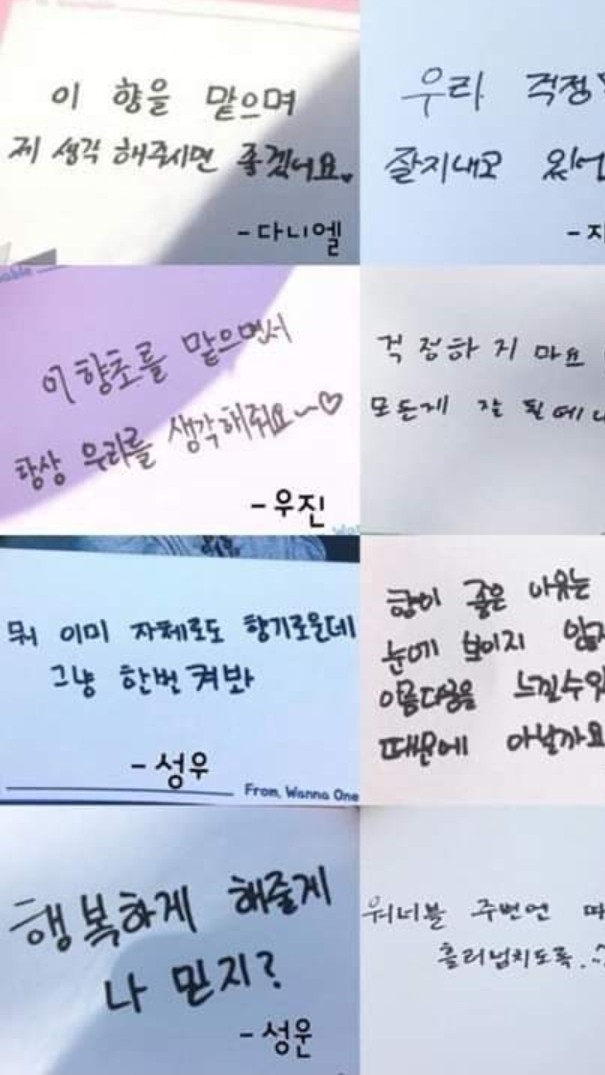 이 향을 맡으며
제 생각 해주시면 좋겠네요
- 다니엘
우리 걱정
잘지내고
이 향초를 맡으면서
항상 우리를 생각해줘요~♡
- 우진
걱정하지 마요
모든게 잘 될테니
뭐 이미 자체로도 향기로운데
그냥 한번 켜봐
- 성우
From, Wanna One
향이 좋은 이유는
눈에 보이지
아름다움을 느낄수있
때문에 아닐까요
행복하게 해줄게
나 믿지?
- 성운
워너블 주변엔
흘러넘치도록..